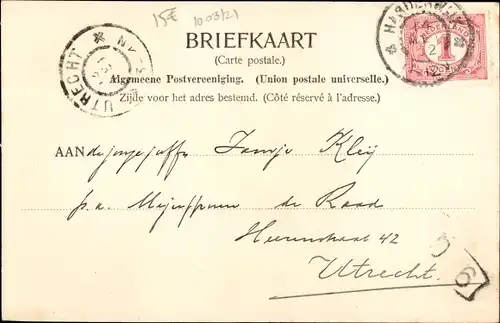 15€ 10.03/21
BRIEFKAART
(Carte postale.)
Algemeene Postvereeniging. (Union postale universelle.)
Zijde voor het adres bestemd. (Côté réservé à l'adresse.)
UTRECHT
NEDERLAND
1
AAN de jongejuffr. Jansje Kleij
p.a. Mejuffrouw de Raad
Heerenstraat 42
Utrecht.